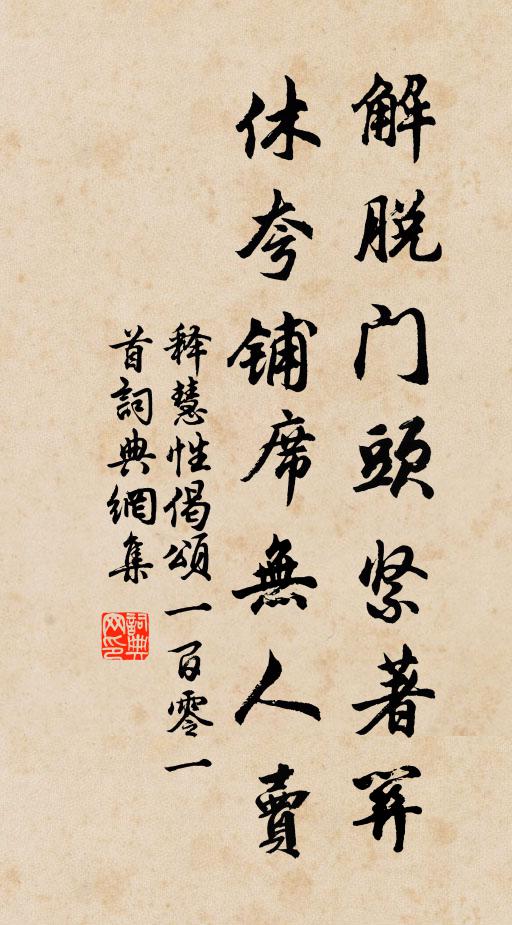 解脱门頭紧著
休夸鋪席無人賣
释慧性偈頌一百零一
首詞典網集
詞典网印